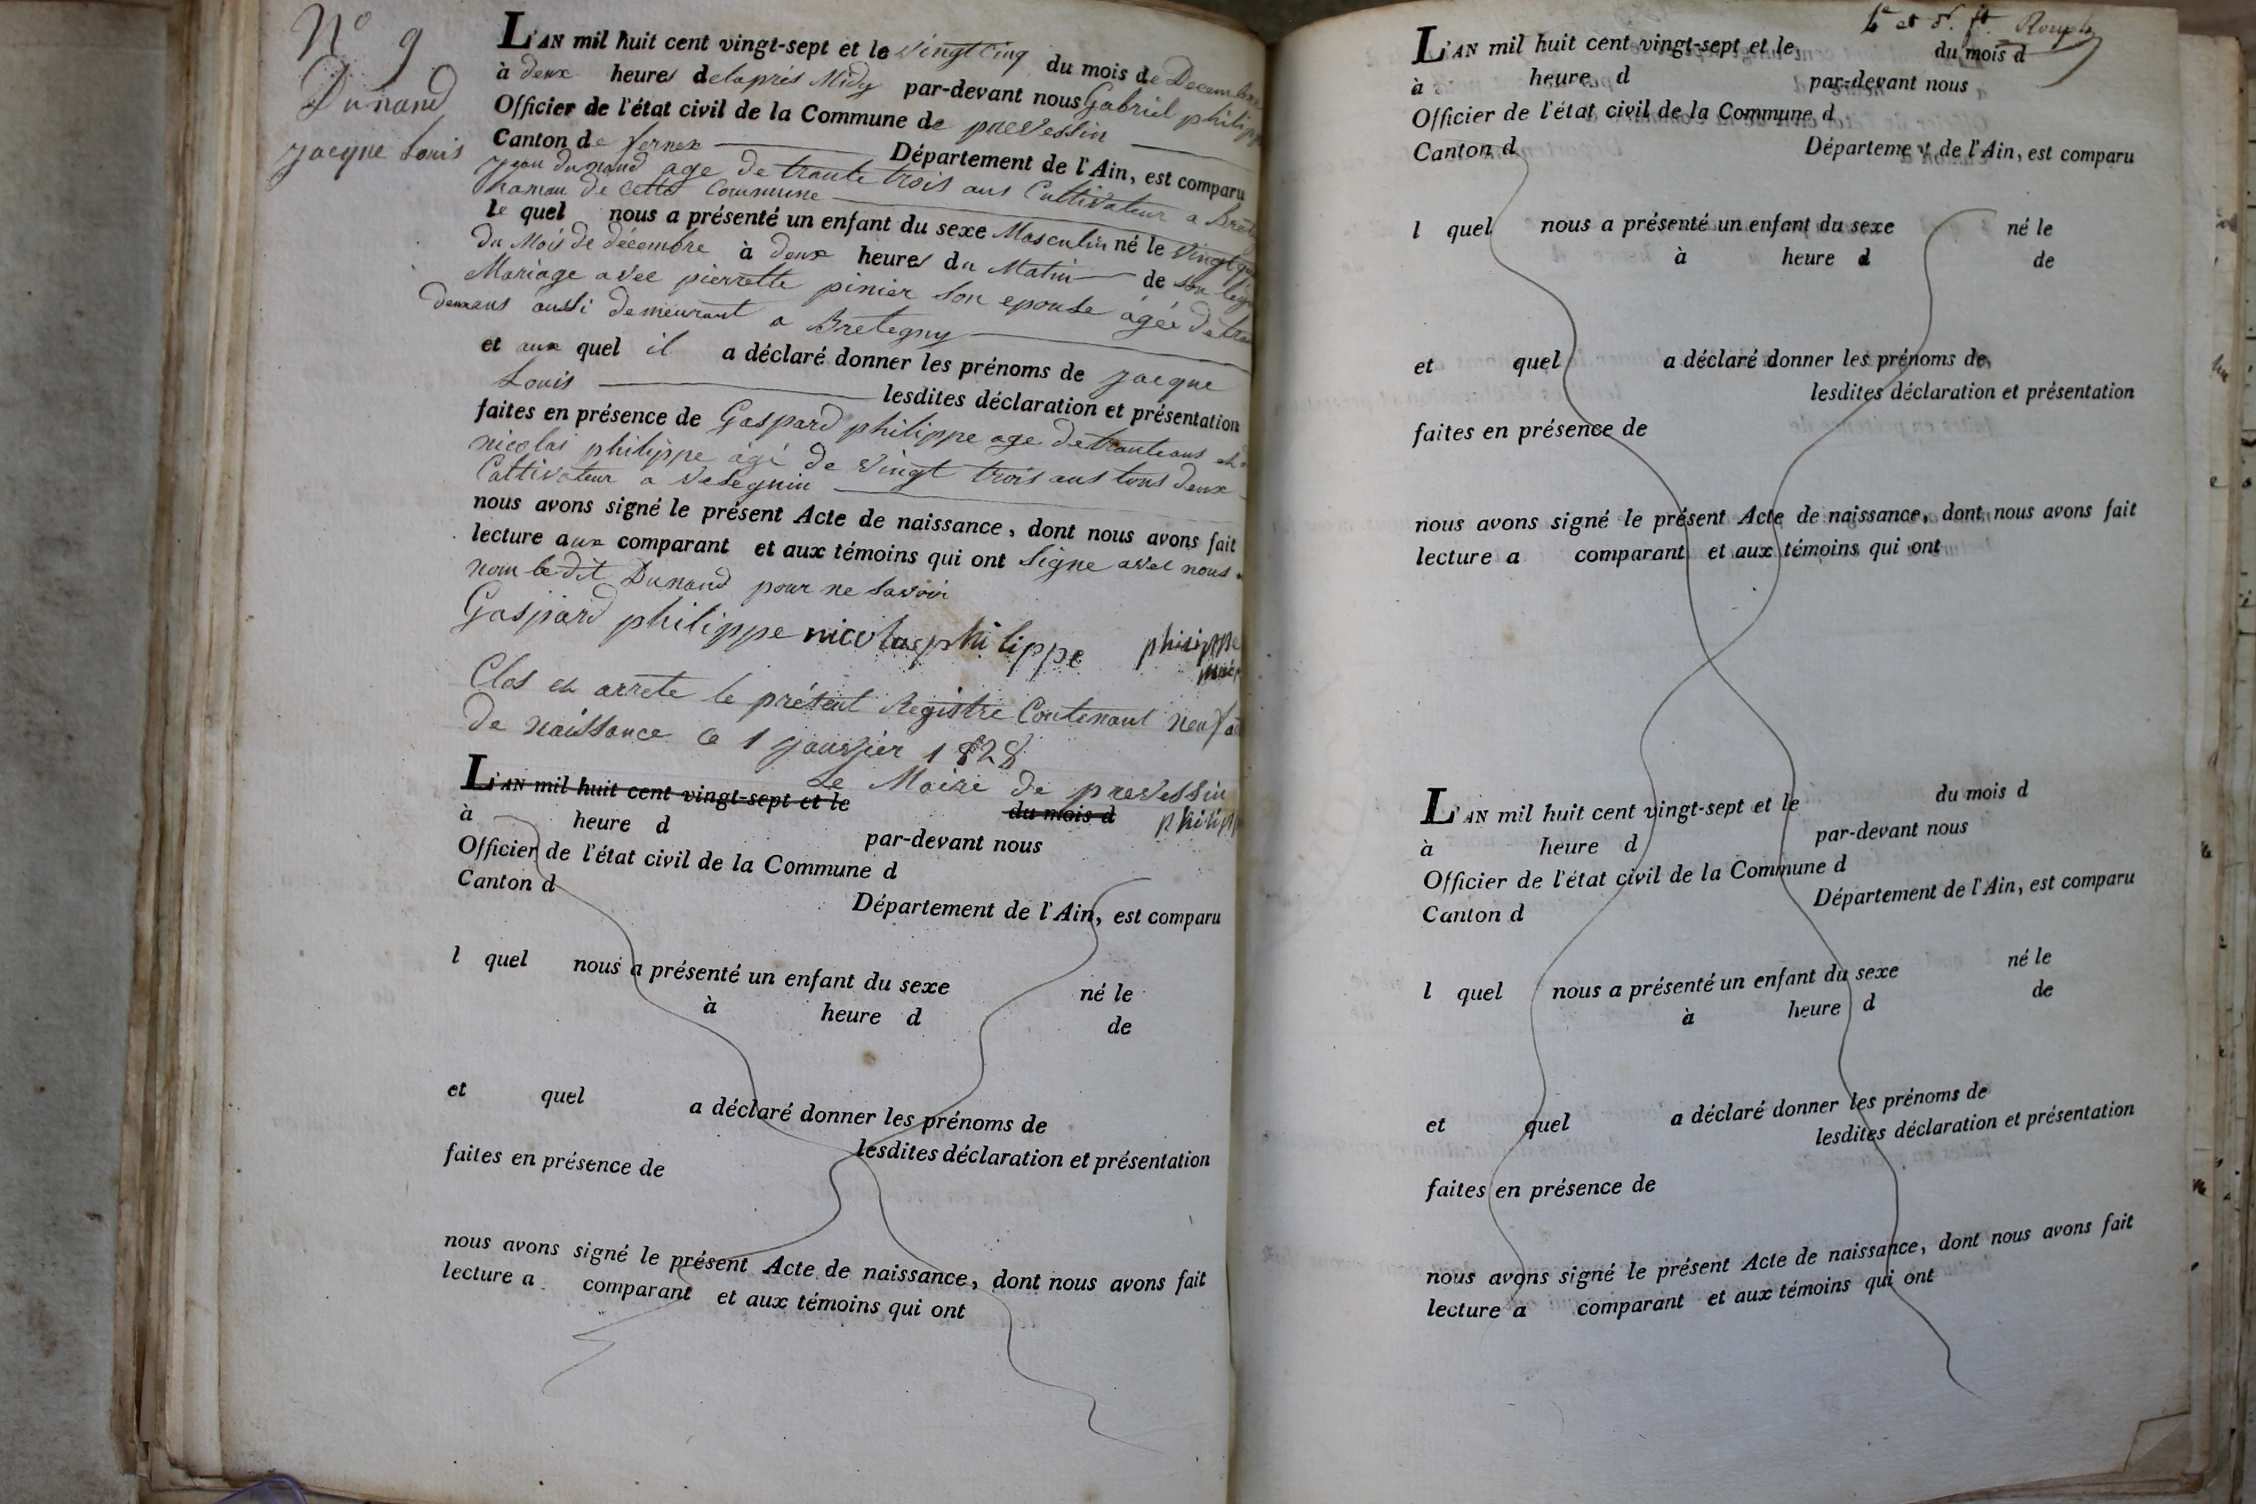 N° 9
Dunand
jacque Louis
L'AN mil huit cent vingt-sept et le vingt cinq du mois de Decembre
à deux heures delaprés Midy par-devant nous Gabriel philippe
Officier de l'état civil de la Commune de prevessin
Canton de fernex Département de l'Ain, est comparu
jean dunand age de trante trois ans Cultivateur a Bret
hamau de cette Commune
le quel nous a présenté un enfant du sexe Masculin né le vingt
du Mois de décembre à deux heures du Matin de son
Mariage avec pierrette pinier son epouse âgée de
deux ans aussi demeurant a Bretegny
et aux quel il a déclaré donner les prénoms de jacque
Louis lesdites déclaration et présentation
faites en présence de Gaspard philippe age de trante ans et
nicolas philippe agé de vingt trois ans tous deux
Cultivateur a Vesegnin
nous avons signé le présent Acte de naissance, dont nous avons fait
lecture aux comparant et aux témoins qui ont signe avec nous
nom le dit Dunand pour ne savoir
Gaspard philippe nicolas philippe philippe
Clos et arrete le présent Registre Contenant neuf
de naissance ce 1 janvier 1828
Le Maire de prevessin
L'AN mil huit cent vingt-sept et le du mois d
à heure d par-devant nous
Officier de l'état civil de la Commune d
Canton d Département de l'Ain, est comparu
l quel nous a présenté un enfant du sexe né le
à heure d de
et quel a déclaré donner les prénoms de
lesdites déclaration et présentation
faites en présence de
nous avons signé le présent Acte de naissance, dont nous avons fait
lecture a comparant et aux témoins qui ont
L'AN mil huit cent vingt-sept et le du mois d
à heure d par-devant nous
Officier de l'état civil de la Commune d
Canton d Département de l'Ain, est comparu
l quel nous a présenté un enfant du sexe né le
à heure d de
et quel a déclaré donner les prénoms de
lesdites déclaration et présentation
faites en présence de
nous avons signé le présent Acte de naissance, dont nous avons fait
lecture a comparant et aux témoins qui ont
L'AN mil huit cent vingt-sept et le du mois d
à heure d par-devant nous
Officier de l'état civil de la Commune d
Canton d Département de l'Ain, est comparu
l quel nous a présenté un enfant du sexe né le
à heure d de
et quel a déclaré donner les prénoms de
lesdites déclaration et présentation
faites en présence de
nous avons signé le présent Acte de naissance, dont nous avons fait
lecture a comparant et aux témoins qui ont